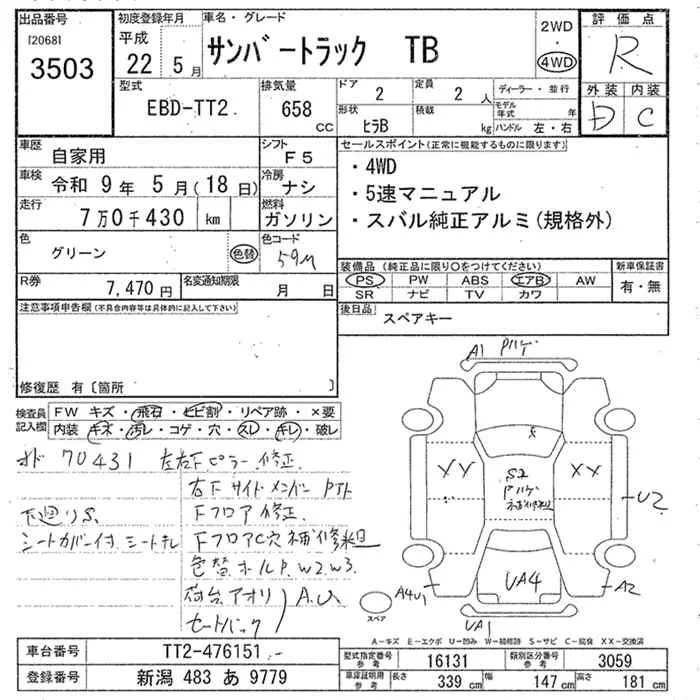 出品番号
[2068]
3503
初度登録年月
平成
22 5月
車名・グレード
サンバートラック TB
2WD
・
4WD
評価点
R
外装 内装
D C
型式
EBD-TT2
排気量
658
CC
ドア
2
定員
2 人
ディーラー・並行
モデル年式 年
形状
ヒラB
積載
kg
ハンドル 左・右
車歴
自家用
シフト
F5
車検
令和 9年 5月(18日)
冷房
ナシ
走行
7万0千430 km
燃料
ガソリン
色
グリーン
色替
色コード
59M
R券
7,470円
名変通知期限
月 日
セールスポイント(正常に機能するものに限ります)
・4WD
・5速マニュアル
・スバル純正アルミ(規格外)
装備品(純正品に限り〇をつけてください)
PS PW ABS エアB AW
SR ナビ TV カワ
新車保証書
有・無
後日品
スペアキー
注意事項申告欄(不具合内容等は具体的に記入して下さい)
修復歴 有〔箇所 〕
検査員記入欄
FW キズ・飛石・ヒビ割・リペア跡・×要
内装 キズ・汚レ・コゲ・穴・スレ・キレ・破レ
メド 70431 左右下ピラー修正
右下サイドメンバー
下廻りS
Fフロア修正
シートカバー付 シートキレ FフロアC穴補修跡
色替 ホールP. W2. W3
荷台アオリ A.U
セートバック
A1 Pハゲ
XX
XX
S2
Pハゲ
補修跡
U2
UA4
A4U1
A2
UA1
スペア
A-キズ E-エクボ U-凹み W-補修跡 S-サビ C-腐食 XX-交換済
車台番号
TT2-476151
登録番号
新潟 483 あ 9779
型式指定番号
参考
16131
類別区分番号
参考
3059
車庫証明用
参考
長さ
339 cm
幅
147 cm
高さ
181 cm